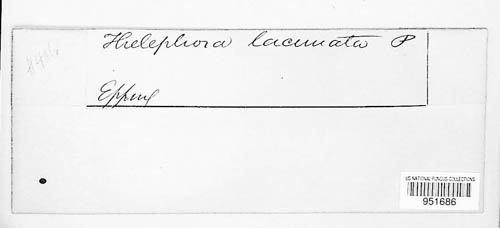 Thelephora lacunata P
Epping
US NATIONAL FUNGUS COLLECTIONS
951686